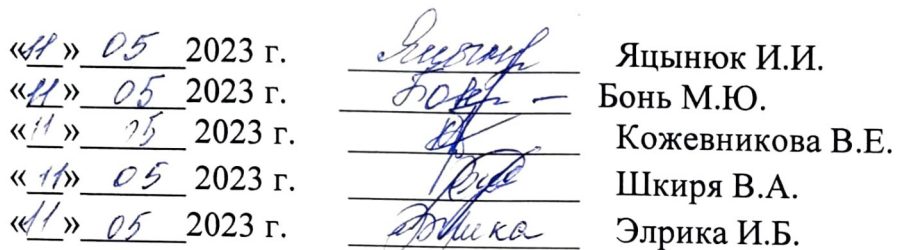 «11» 05 2023 г. Яцынюк Яцынюк И.И.
«11» 05 2023 г. Бонь Бонь М.Ю.
«11» 05 2023 г. Кожевникова В.Е.
«11» 05 2023 г. Шкиря В.А.
«11» 05 2023 г. Элрика Элрика И.Б.